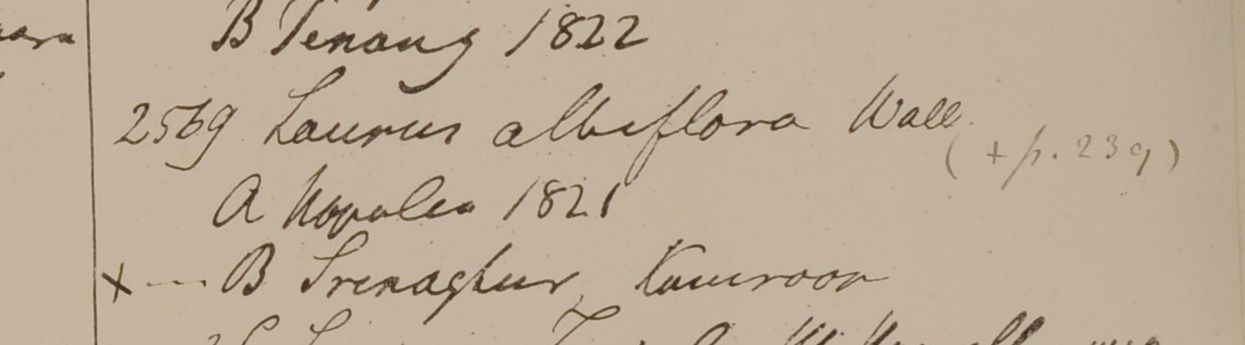 B Penang 1822
2569 Laurus albiflora Wall.
(+ p. 239)
A Napalia 1821
x -- B Srinaghur, Kamroon